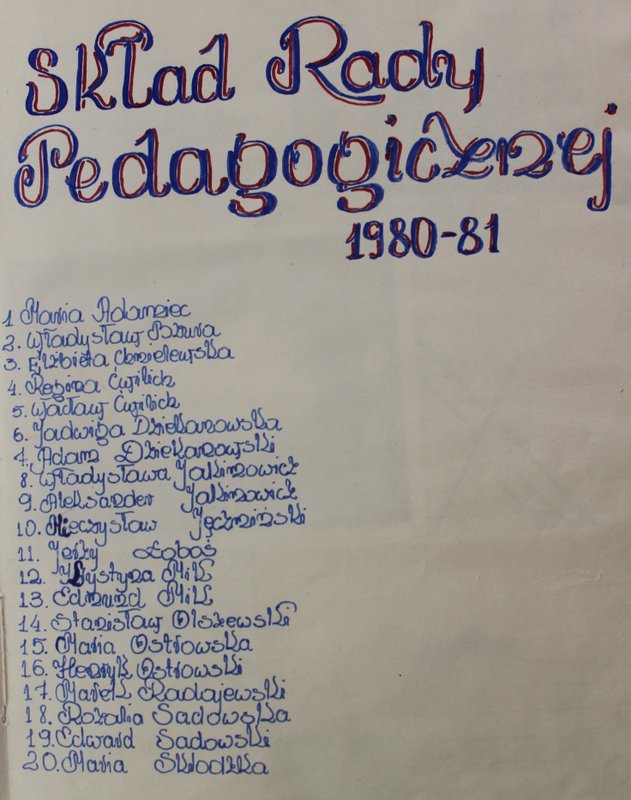 Skład Rady
Pedagogicznej
1980-81
1 Maria Adamiec
2. Władysław Bzura
3. Elżbieta Chmielewska
4. Regina Ćwilich
5. Wacław Ćwilich
6. Jadwiga Dziekanowska
7. Adam Dziekanowski
8. Władysława Jakimowicz
9. Aleksander Jakimowicz
10. Mieczysław Jęczmiński
11. Jerzy Łoboś
12. Krystyna Mik
13. Edmund Mik
14. Stanisław Olszewski
15. Maria Ostrowska
16. Henryk Ostrowski
17. Marek Radajewski
18. Rozalia Sadowska
19. Edward Sadowski
20. Maria Skłodzka